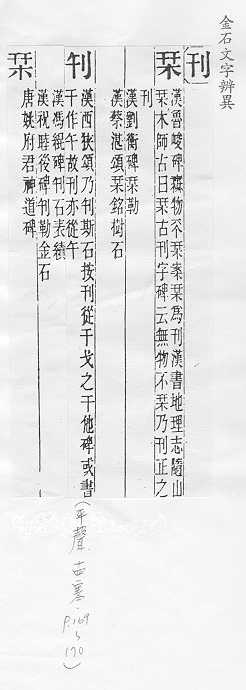 金石文字辨異
刊
栞
漢魯峻碑釋物不栞案栞爲刊漢書地理志隨山
栞木師古曰栞古刊字碑云無物不栞乃刊正之
刊
漢劉衡碑栞勒
漢蔡湛頌栞銘樹石
刋
漢西狹頌乃刋斯石按刊從干戈之干他碑或書
干作午故刊亦從午
漢馮緄碑刊石表績
漢祝睦後碑刊勒金石
栞
唐姚府君神道碑
(平聲 十四寒 P.169 170)